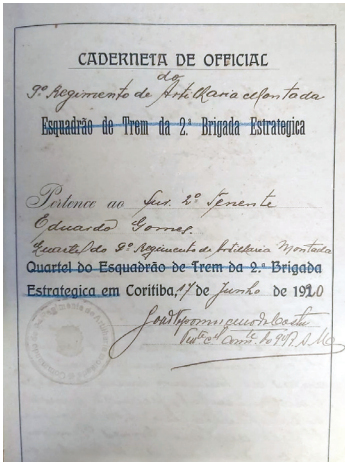 CADERNETA DE OFFICIAL
do
9º Regimento de Artilharia Montada
Esquadrão de Trem da 2.ª Brigada Estrategica
Pertence ao Snr. 2º Tenente
Eduardo Gomes.
Quartel do 9º Regimento de Artilharia Montada
Quartel do Esquadrão de Trem da 2.ª Brigada
Estrategica em Coritiba, 17 de Junho de 1920